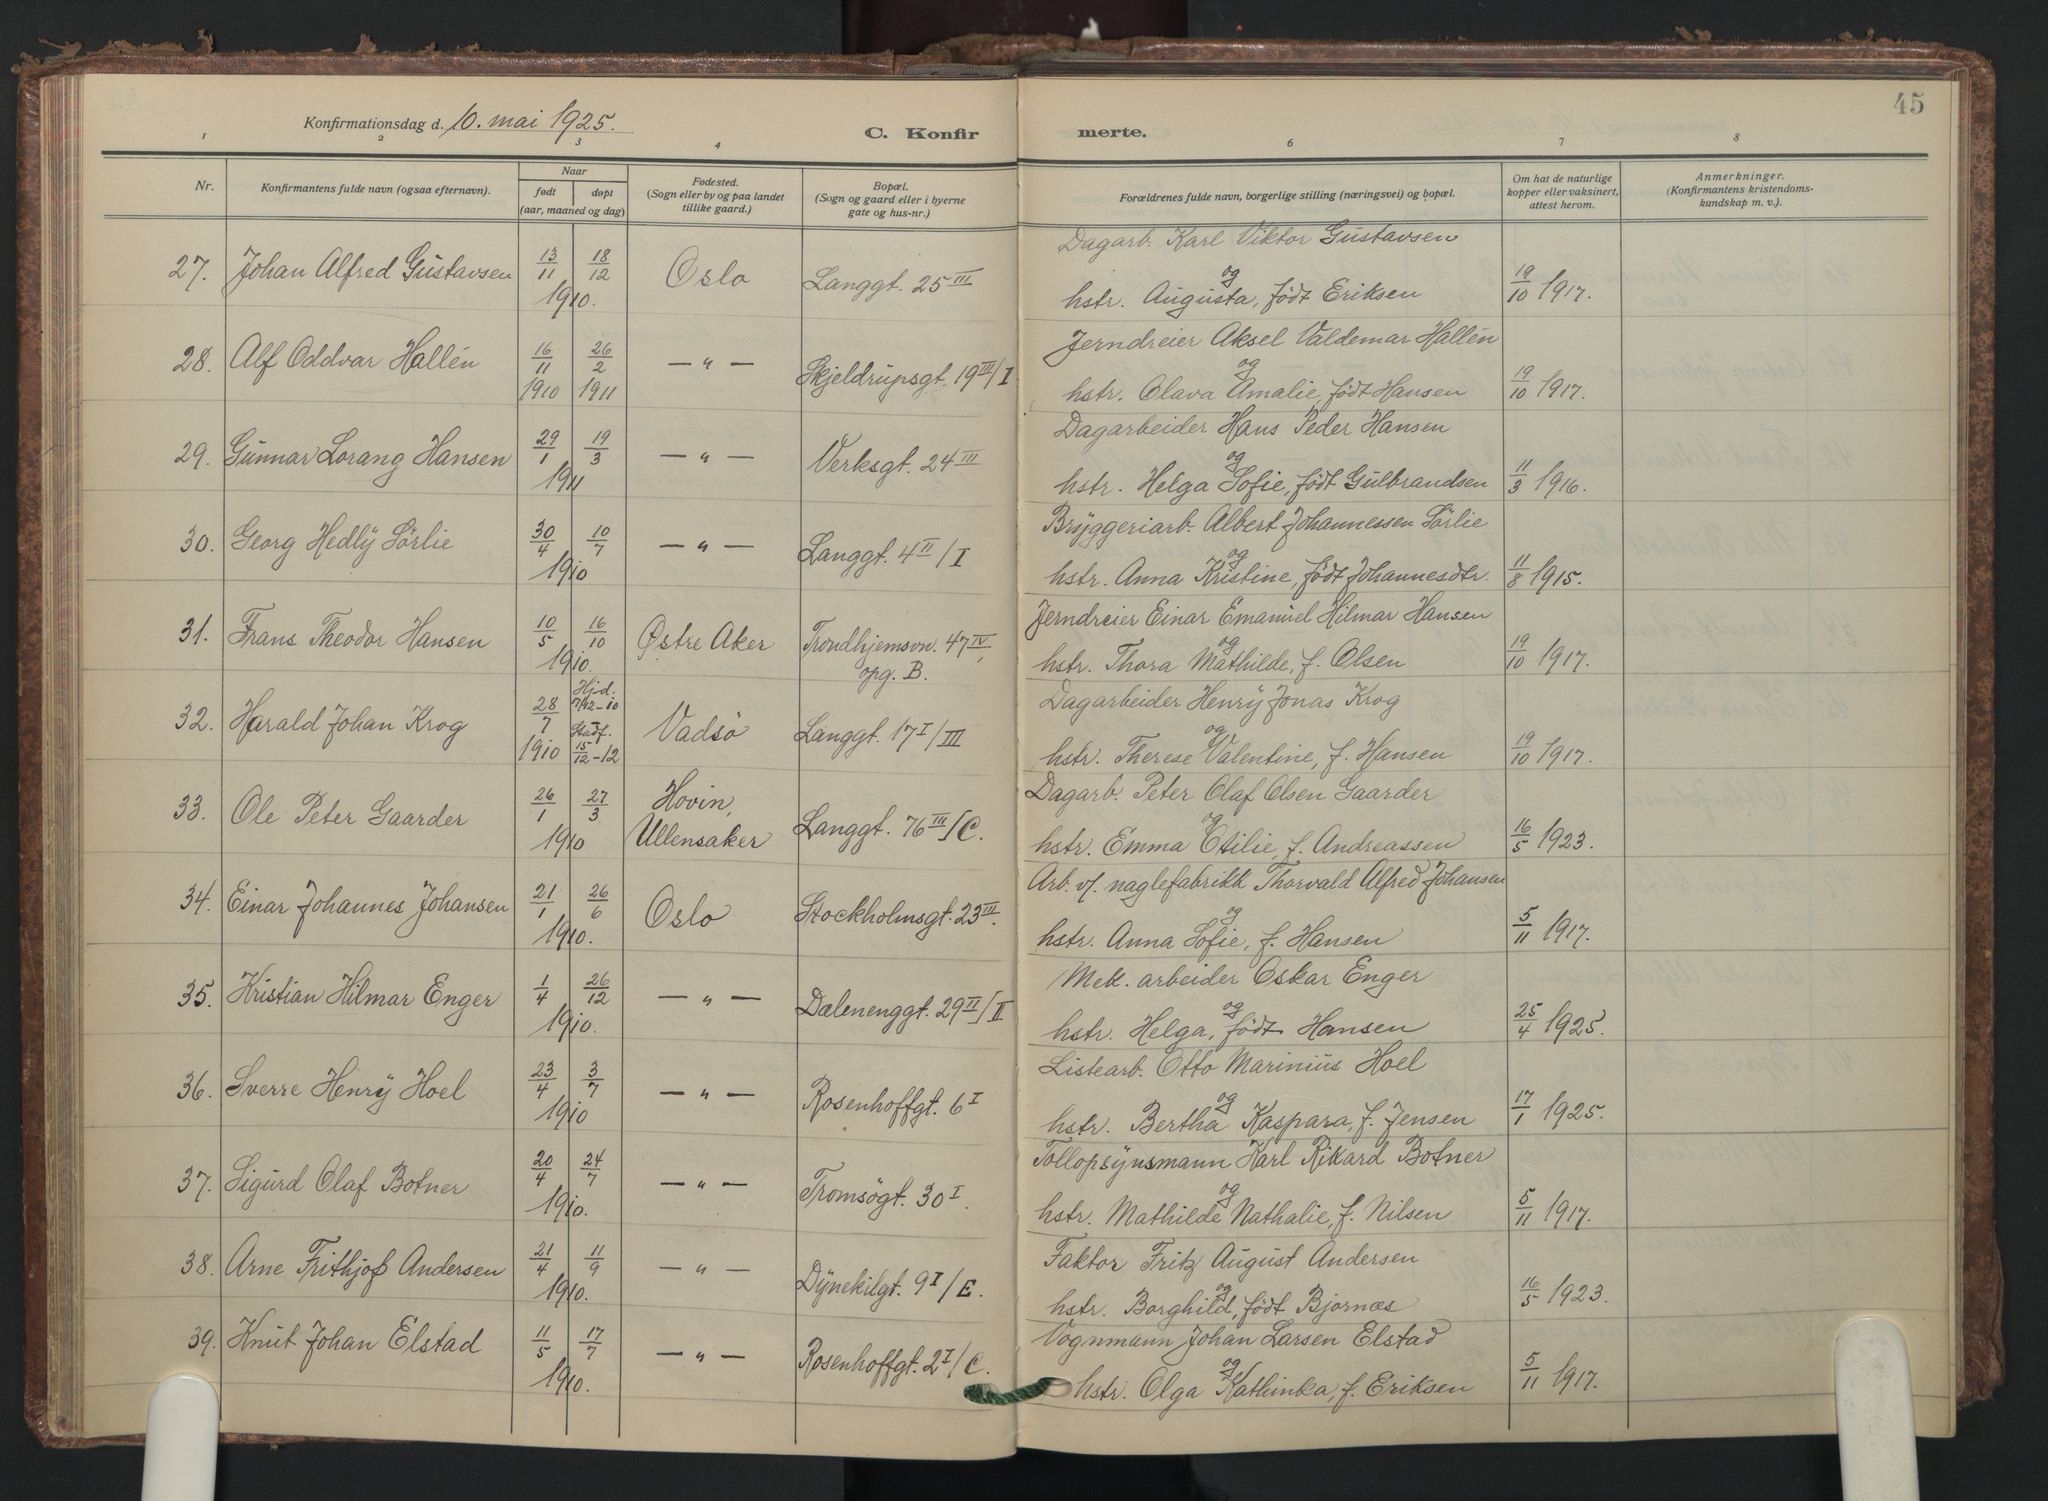 45
Konfirmationsdag d. 10. mai 1925.
C. Konfirmerte.
1 2 3 4 6 7 8
Nr.
Konfirmantens fulde navn (ogsaa efternavn).
Naar
født døpt
(aar, maaned og dag)
Fødested.
(Sogn eller by og paa landet
tillike gaard.)
Bopæl.
(Sogn og gaard eller i byerne
gate og hus-nr.)
Forældrenes fulde navn, borgerlige stilling (næringsvei) og bopæl.
Om hat de naturlige
kopper eller vaksinert,
attest herom.
Anmerkninger.
(Konfirmantens kristendoms-
kundskap m. v.)
27. Johan Alfred Gustavsen 13/11 18/12 1910. Oslo Langgt. 25 III
Dagarb. Karl Viktor Gustavsen
og
hstr. Augusta, født Eriksen 19/10 1917.
28. Alf Oddvar Hallén 16/11 1910 26/2 1911 — " — Skjeldrupsgt. 19 III/I
Jerndreier Aksel Valdemar Hallén
og
hstr. Olava Amalie, født Hansen 19/10 1917.
29. Gunnar Lorang Hansen 29/1 19/3 1911 — " — Verksgt. 24 III
Dagarbeider Hans Peder Hansen
og
hstr. Helga Sofie, født Gulbrandsen 11/3 1916.
30. Georg Hedly Sørlie 30/4 10/7 1910 — " — Langgt. 4 II/I
Bryggeriarb. Albert Johannessen Sørlie
og
hstr. Anna Kristine, født Johannesdtr. 11/8 1915.
31. Frans Theodor Hansen 10/5 16/10 1910. Østre Aker Trondhjemsvn. 47 IV,
opg. B.
Jerndreier Einar Emanuel Hilmar Hansen
og
hstr. Thora Mathilde, f. Olsen 19/10 1917.
32. Harald Johan Krog 28/7 1910 Hjd. 7/12-10 Stadf. 15/12-12 Vadsø Langgt. 17 I/III
Dagarbeider Henry Jonas Krog
og
hstr. Therese Valentine, f. Hansen 19/10 1917.
33. Ole Peter Gaarder 26/1 27/3 1910 Hovin,
Ullensaker Langgt. 76 III/C.
Dagarb. Peter Olaf Olsen Gaarder
og
hstr. Emma Otilie, f. Andreassen 16/5 1923.
34. Einar Johannes Johansen 21/1 26/6 1910. Oslo Stockholmsgt. 23 III.
Arb. v/. naglefabrikk Thorvald Alfred Johansen
og
hstr. Anna Sofie, f. Hansen 5/11 1917.
35. Kristian Hilmar Enger 1/4 26/12 1910. — " — Dælenenggt. 29 II/II
Mek. arbeider Oskar Enger
og
hstr. Helga, født Hansen 25/4 1925.
36. Sverre Henry Hoel 23/4 3/7 1910 — " — Rosenhoffgt. 6 I
Listearb. Otto Marinius Hoel
og
hstr. Bertha Kaspara, f. Jensen 17/1 1925.
37. Sigurd Olaf Botner 20/4 24/7 1910. — " — Tromsøgt. 30 I.
Tollopsynsmann Karl Rikard Botner
og
hstr. Mathilde Nathalie, f. Nilsen 5/11 1917.
38. Arne Frithjof Andersen 21/4 11/9 1910. — " — Dynekilgt. 9 I/E.
Faktor Fritz August Andersen
og
hstr. Borghild, født Bjornæs 16/5 1923.
39. Knut Johan Elstad 11/5 17/7 1910. — " — Rosenhoffgt. 2 I/C.
Vognmann Johan Larsen Elstad
og
hstr. Olga Kathinka, f. Eriksen 5/11 1917.